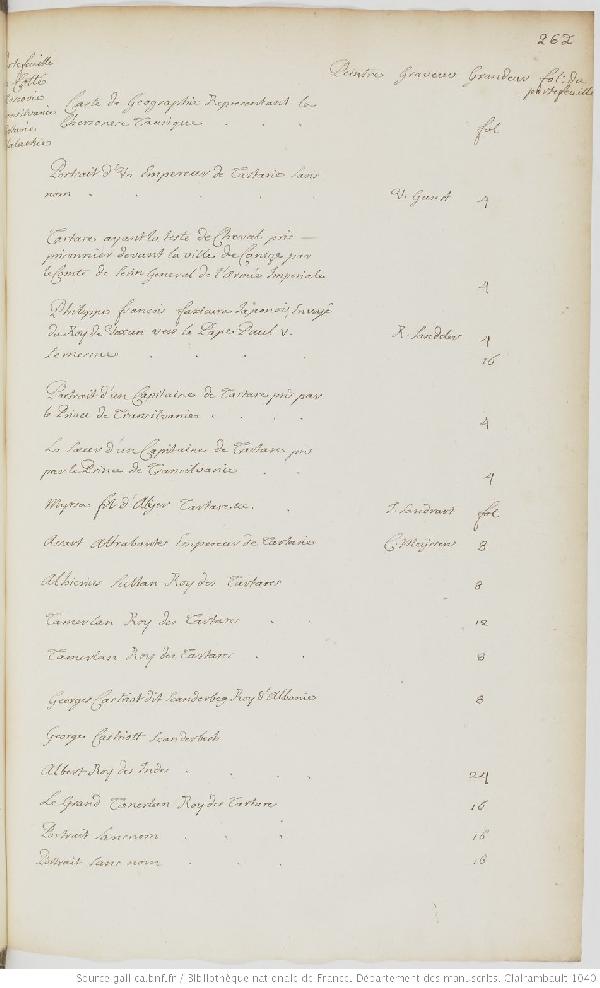 262
Peintre Graveur Grandeur fol: du
portefeuille
Carte de Geographie Representant la
Chersonese Taurique . . . fol
Portrait d'Un Empereur de Tartarie sans
nom . . . V. Gunst 4
Tartare ayant la teste de Cheval pris
prisonnier devant la ville de par
le Comte de General de l'Armée Imperiale 4
Philippes francois Japonois Envoyé
du Roy de Voxu vers le Pape Paul V. R. Sadeler 4
le mesme . . . 16
Portrait d'un Capitaine de Tartare pris par
le Prince de Transilvanie . . 4
La Soeur d'un Capitaine de Tartare pris
par le Prince de Transilvanie . 4
Myrsa fils d' Tartare . J. Sandrart fol.
Empereur de Tartarie C. Meyssens 8
Sultan Roy des Tartares 8
Tamerlan Roy des Tartares . . 12
Tamerlan Roy des Tartares . . 8
Georges Castriot dit Scanderbeg Roy d'Albanie 8
Georges Castriott Scanderbech
Albert Roy des Indes . . . 24
Le Grand Tamerlan Roy des Tartares 16
Portrait sans nom . . . 16
Portrait sans nom . . . 16
Source gallica.bnf.fr / Bibliothèque nationale de France. Département des manuscrits. Clairambault 1040